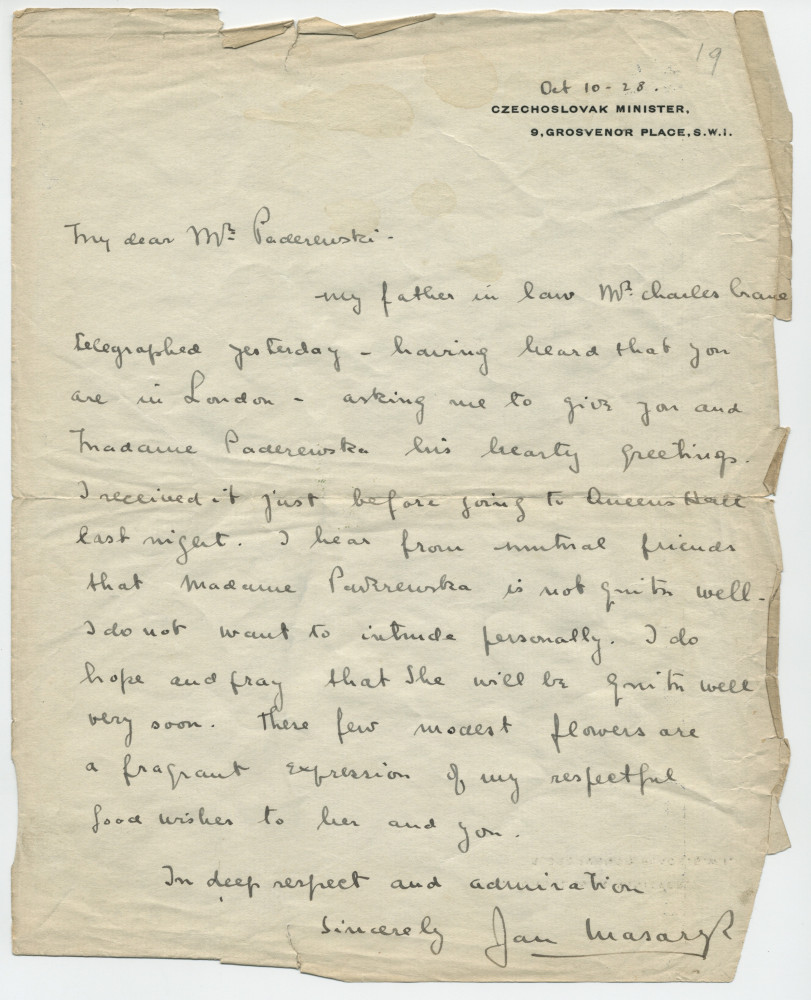 19
Oct 10-28.
CZECHOSLOVAK MINISTER,
9, GROSVENOR PLACE, S.W.1.
My dear Mr. Paderewski -
my father in law Mr. Charles Crane
telegraphed yesterday - having heard that you
are in London - asking me to give you and
Madame Paderewska his hearty greetings.
I received it just before going to Queens Hall
last night. I hear from mutual friends
that Madame Paderewska is not quite well -
I do not want to intrude personally. I do
hope and pray that She will be quite well
very soon. These few modest flowers are
a fragrant expression of my respectful
good wishes to her and you.
In deep respect and admiration
Sincerely Jan Masaryk